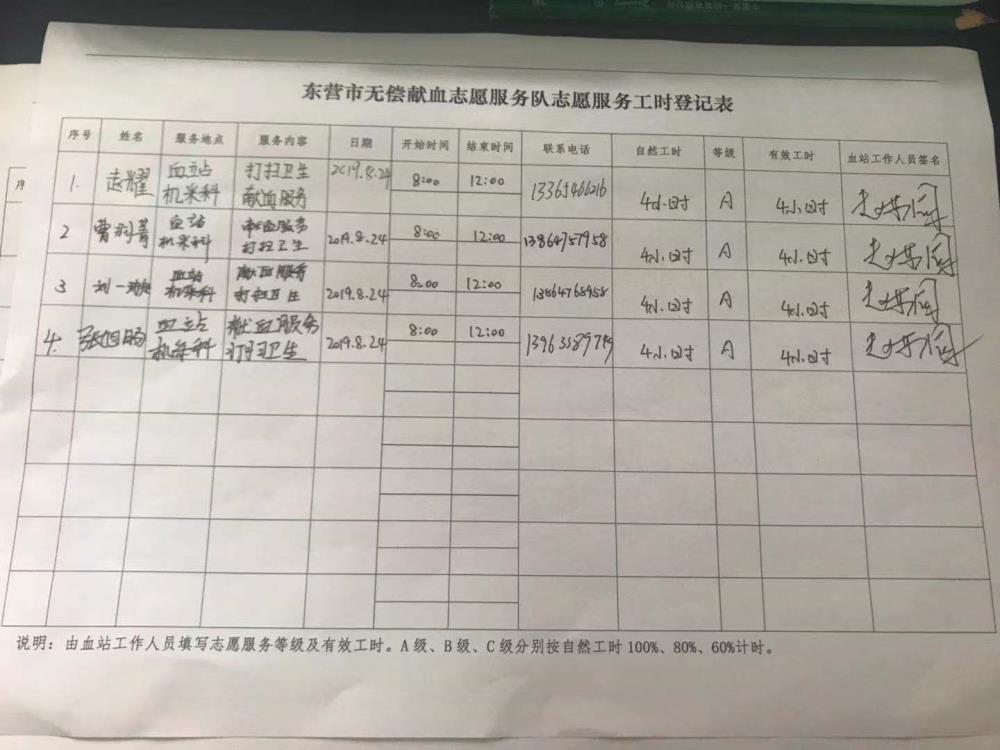 东营市无偿献血志愿服务队志愿服务工时登记表
序号 姓名 服务地点 服务内容 日期 开始时间 结束时间 联系电话 自然工时 等级 有效工时 血站工作人员签名
1. 赵耀 血站 打扫卫生 2019.8.24 8:00 12:00 13365466216 4小时 A 4小时
机采科 献血服务
2 曹润菁 血站 献血服务 2019.8.24 8:00 12:00 13864757958 4小时 A 4小时
机采科 打扫卫生
3 刘一 血站 献血服务 2019.8.24 8:00 12:00 13864768958 4小时 A 4小时
机采科 打扫卫生
4. 张旭旸 血站 献血服务 2019.8.24 8:00 12:00 4小时 A 4小时
机采科 打扫卫生
说明：由血站工作人员填写志愿服务等级及有效工时。A级、B级、C级分别按自然工时100%、80%、60%计时。